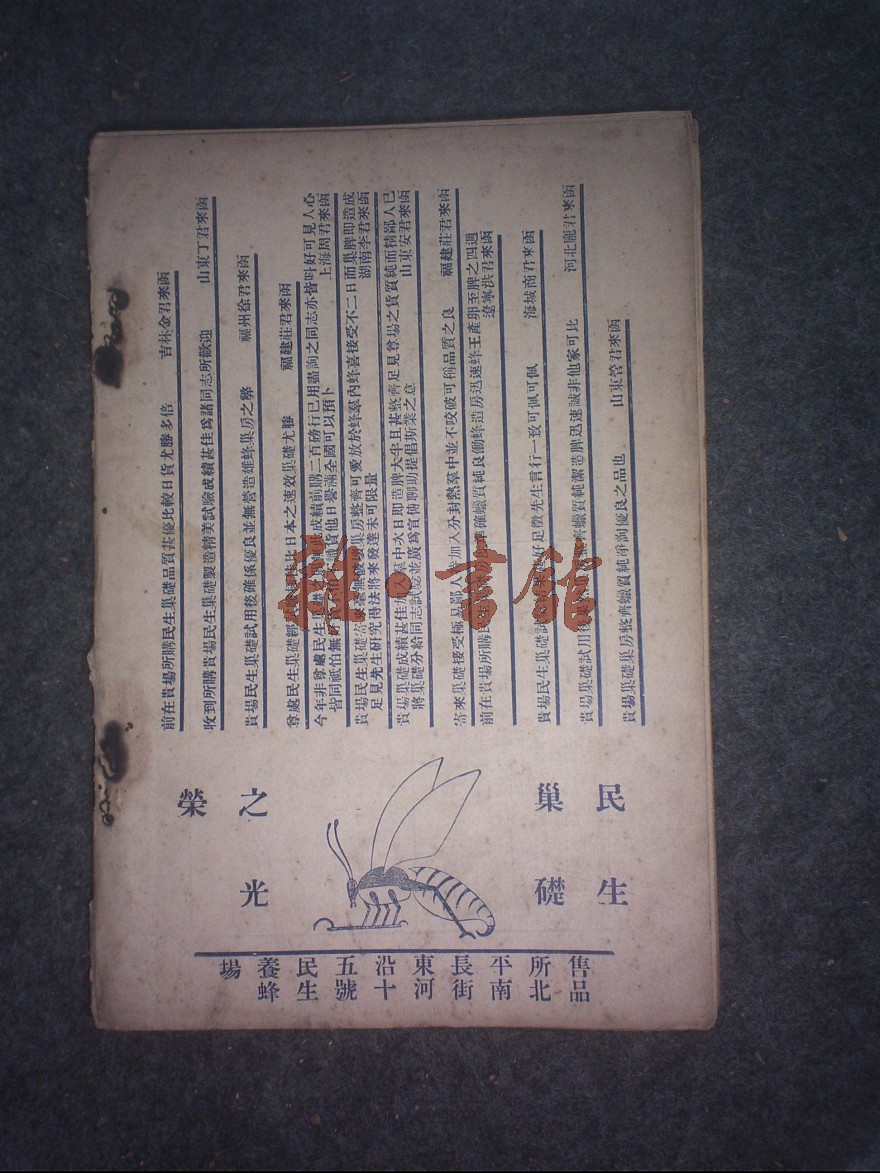 民生
巢礎
之光
榮
前在貴場所購民生巢礎品質甚優比較日貨尤勝多倍 吉林金君來函
收到所購貴場民生巢礎製造精美試驗成績甚佳爲諸同志所歡迎 山東丁君來函
貴場民生巢礎試用後確係優良並無營造雄蜂巢房之弊 福州徐君來函
尊處民生巢礎 比日本之速效巢礎尤勝 福建莊君來函
今年非尊處民生巢礎 成績前購二百磅行已用盡詢之同志亦皆叫好可見人心
皆同祗怕無 貨他日譽滿全國可以預卜 上海周君來函
貴場民生巢礎 巢房整齊可愛放於蜂羣內蜂喜接受不二日而巢脾即造成
足見先生研究得法將來發達未可限量 湖南李君來函
貴場巢礎成績甚佳 羣中次日即造脾大半且甚整齊足見尊場之貨質純而精鄙人已
將巢礎分給同志試 並廣爲宣傳聊助提倡斯業之意 山東安君來函
寄來巢礎接受極易鄙人 加入分封熱羣中並不咬破可稱品質之良 福建莊君來函
前在貴場所購民 確蠟質純良働蜂造房迅速蜂王產卵至脾之四週
遼寧洪君來函
貴場民生巢礎試 好足徵先生言行一致可佩可佩 海城商君來函
貴場巢礎試用 齊蠟質純潔造脾迅速誠非他家可比 河北龐君來函
貴場巢礎巢房整齊蠟質純淨詢優良之品也 山東管君來函
售品所北平南長街東河沿十五號民生養蜂場